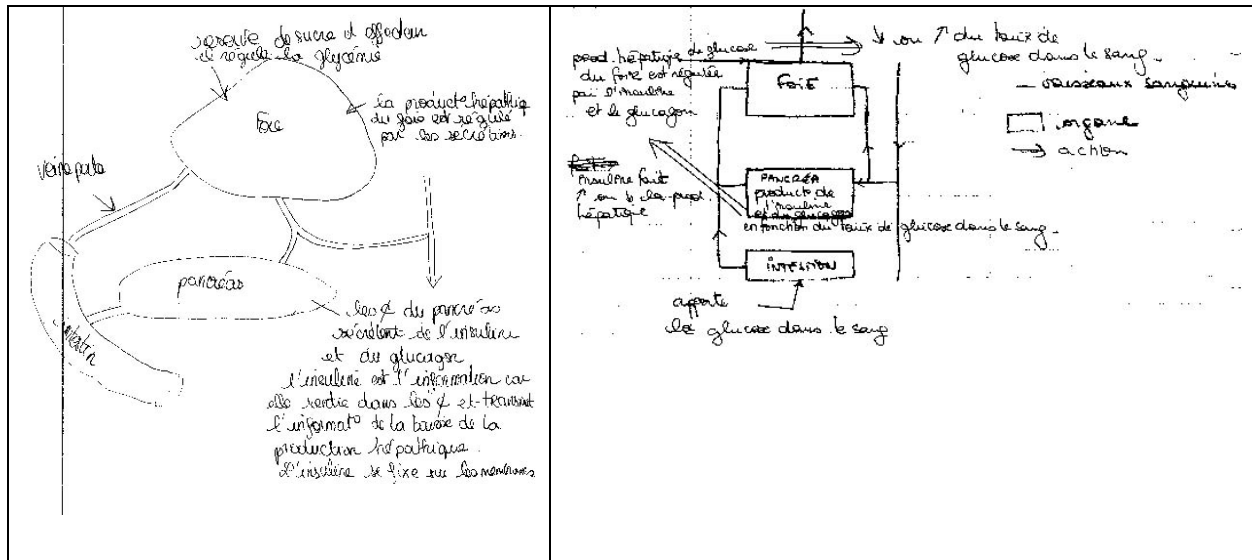 réserve de sucre et effecteur
il régule la glycémie
foie
la product° hépathique
du foie est régulé
par les secrétions.
veine porte
pancréas
intestin
les ¢ du pancréas
sécrètent de l'insuline
et du glucagon
l'insuline est l'information car
elle rentre dans les ¢ et transmet
l'informat° de la baisse de la
production hépathique.
L'insuline se fixe sur les membranes
↘ ou ↗ du taux de
glucose dans le sang.
prod. hépatique de glucose
du foie est régulée
par l'insuline
et le glucagon
FOIE
— vaisseaux sanguins
organe
⇒ action
insuline fait
↑ ou ↓ la prod
hépatique
PANCRÉA
product° de
l'insuline
et du glucagon
en fonction du taux de glucose dans le sang.
INTESTION
apporte
le glucose dans le sang